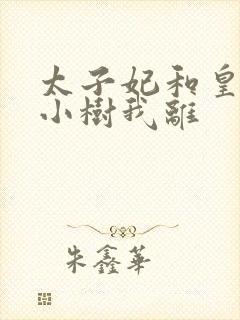 太子妃和皇
小樹我離
朱鑫華